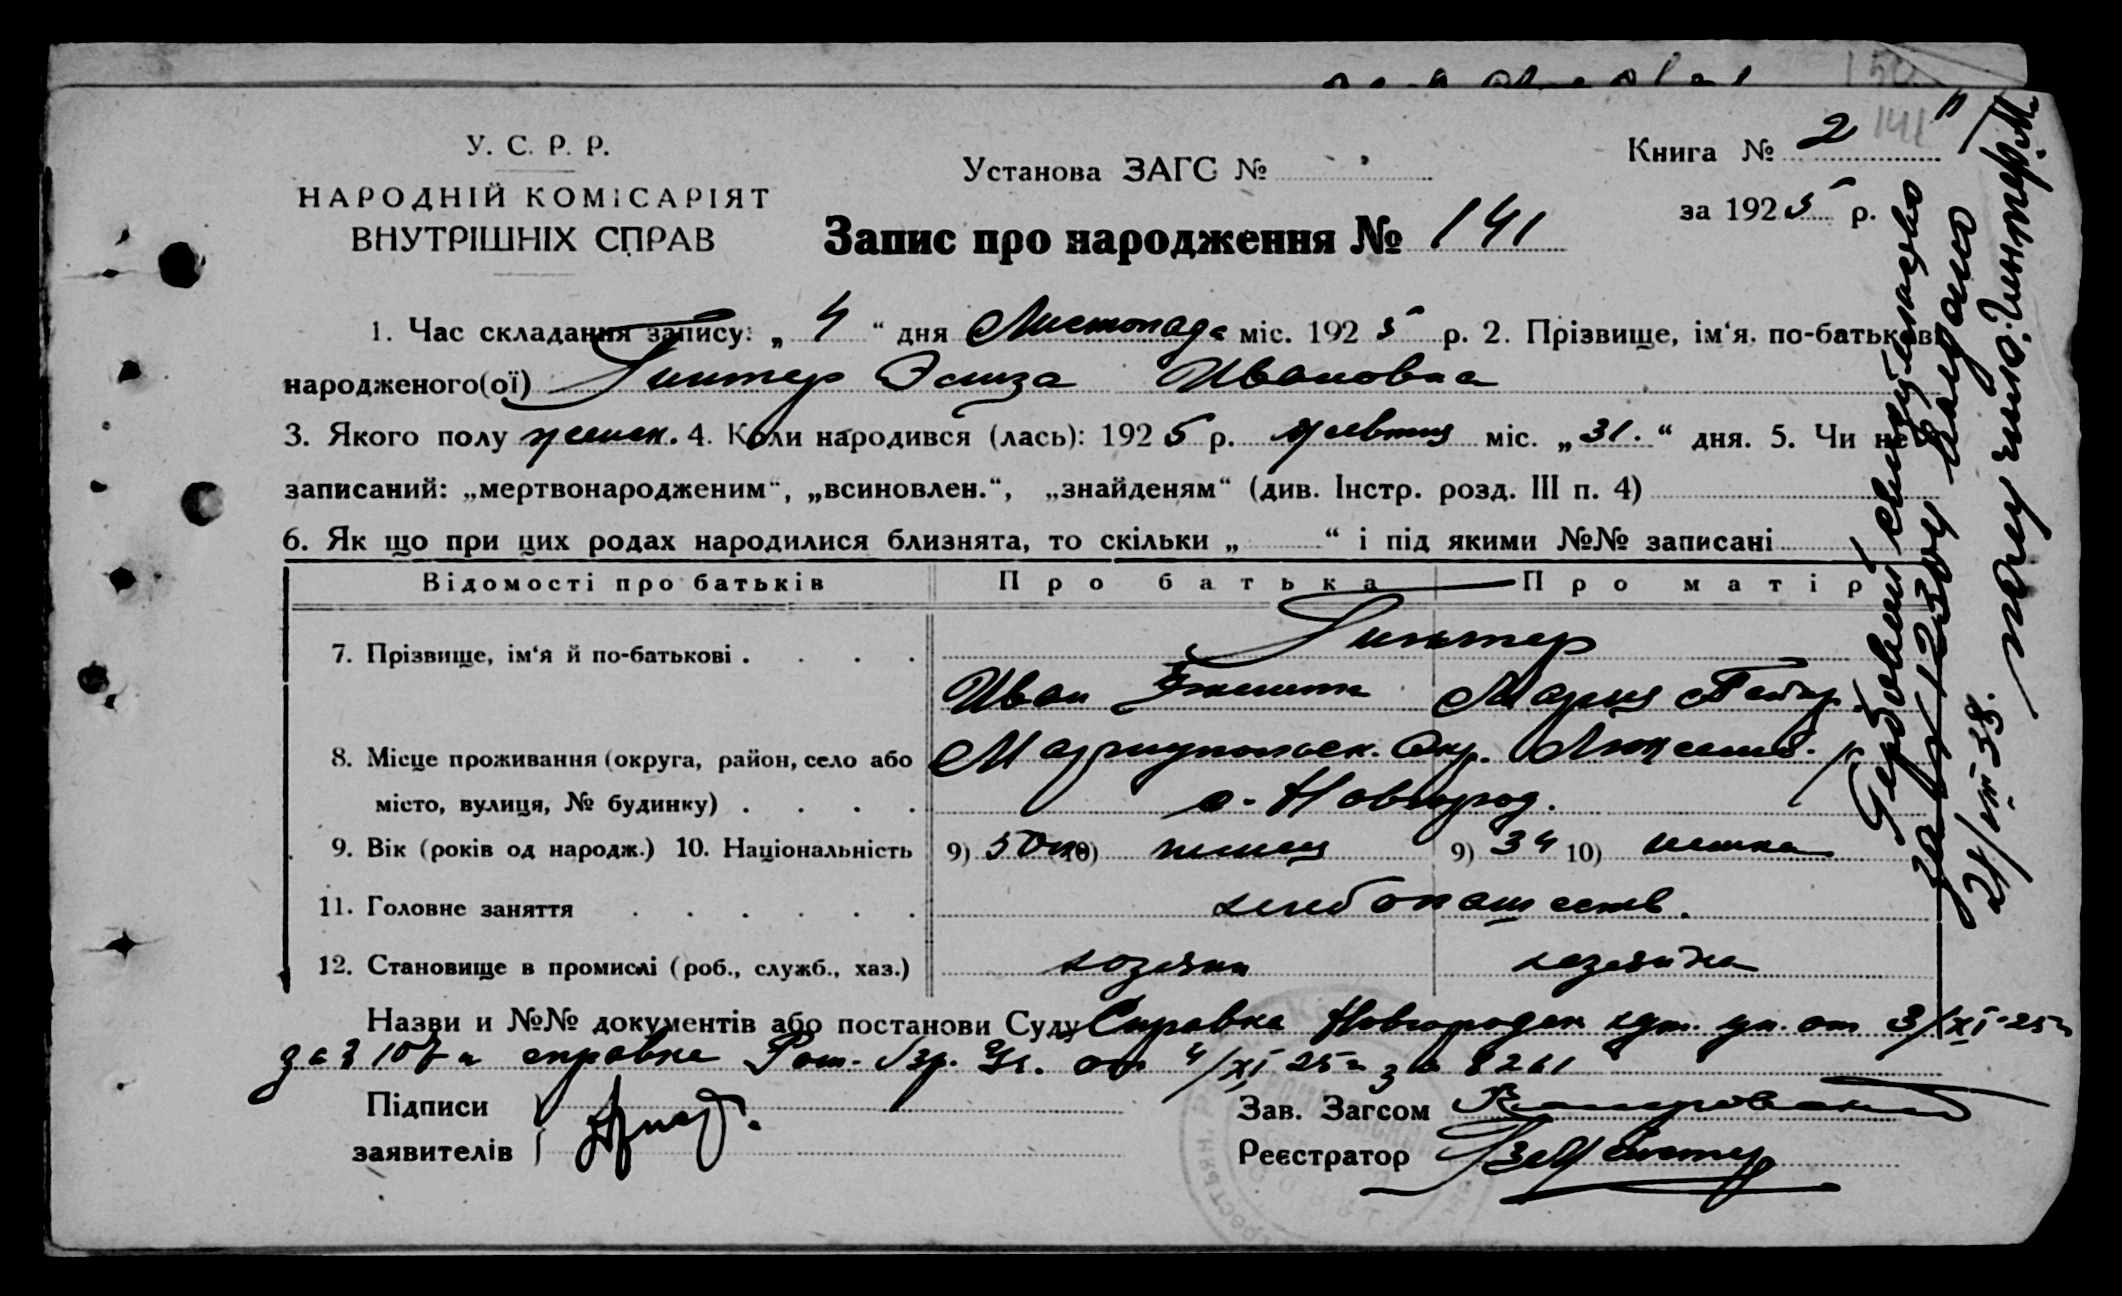 У. С. Р. Р.
НАРОДНІЙ КОМІСАРІЯТ
ВНУТРІШНІХ СПРАВ
Установа ЗАГС №
Книга № 2
141
за 1925 р.
Запис про народження № 141
1. Час складання запису: „ 4 “ дня Листопада міс. 1925 р. 2. Прізвище, ім‘я, по-батькові
народженого(ої) Гинтер Эльза Ивановна
3. Якого полу женск. 4. Коли народився (лась): 1925 р. жовтня міс. „ 31. “ дня. 5. Чи не
записаний: „мертвонародженим“, „всиновлен.“, „знайденям“ (див. Інстр. розд. III п. 4)
6. Як що при цих родах народилися близнята, то скільки „ “ і під якими №№ записані
Відомості про батьків Про батька Про матір
7. Прізвище, ім‘я й по-батькові . . . . Гинтер
Иван Мария
8. Місце проживання (округа, район, село або Мариупольск. Окр. Люксемб. р.
місто, вулиця, № будинку) . . . . с. Новгород.
9. Вік (років од народж.) 10. Національність 9) 50 10) немец 9) 34 10) немка
11. Головне заняття . . . . . . хлебопашеств.
12. Становище в промислі (роб., служб., хаз.) хозяин хозяйка
Назви и №№ документів або постанови Суду Справка Новгородск от 3/XI-25г
за № справка от 4/XI 25г за № 8261
Підписи
заявителів
Зав. Загсом
Реєстратор
Гербовый свидетельство
за выдано
21/VII 38.
Получило: Гинтер М.